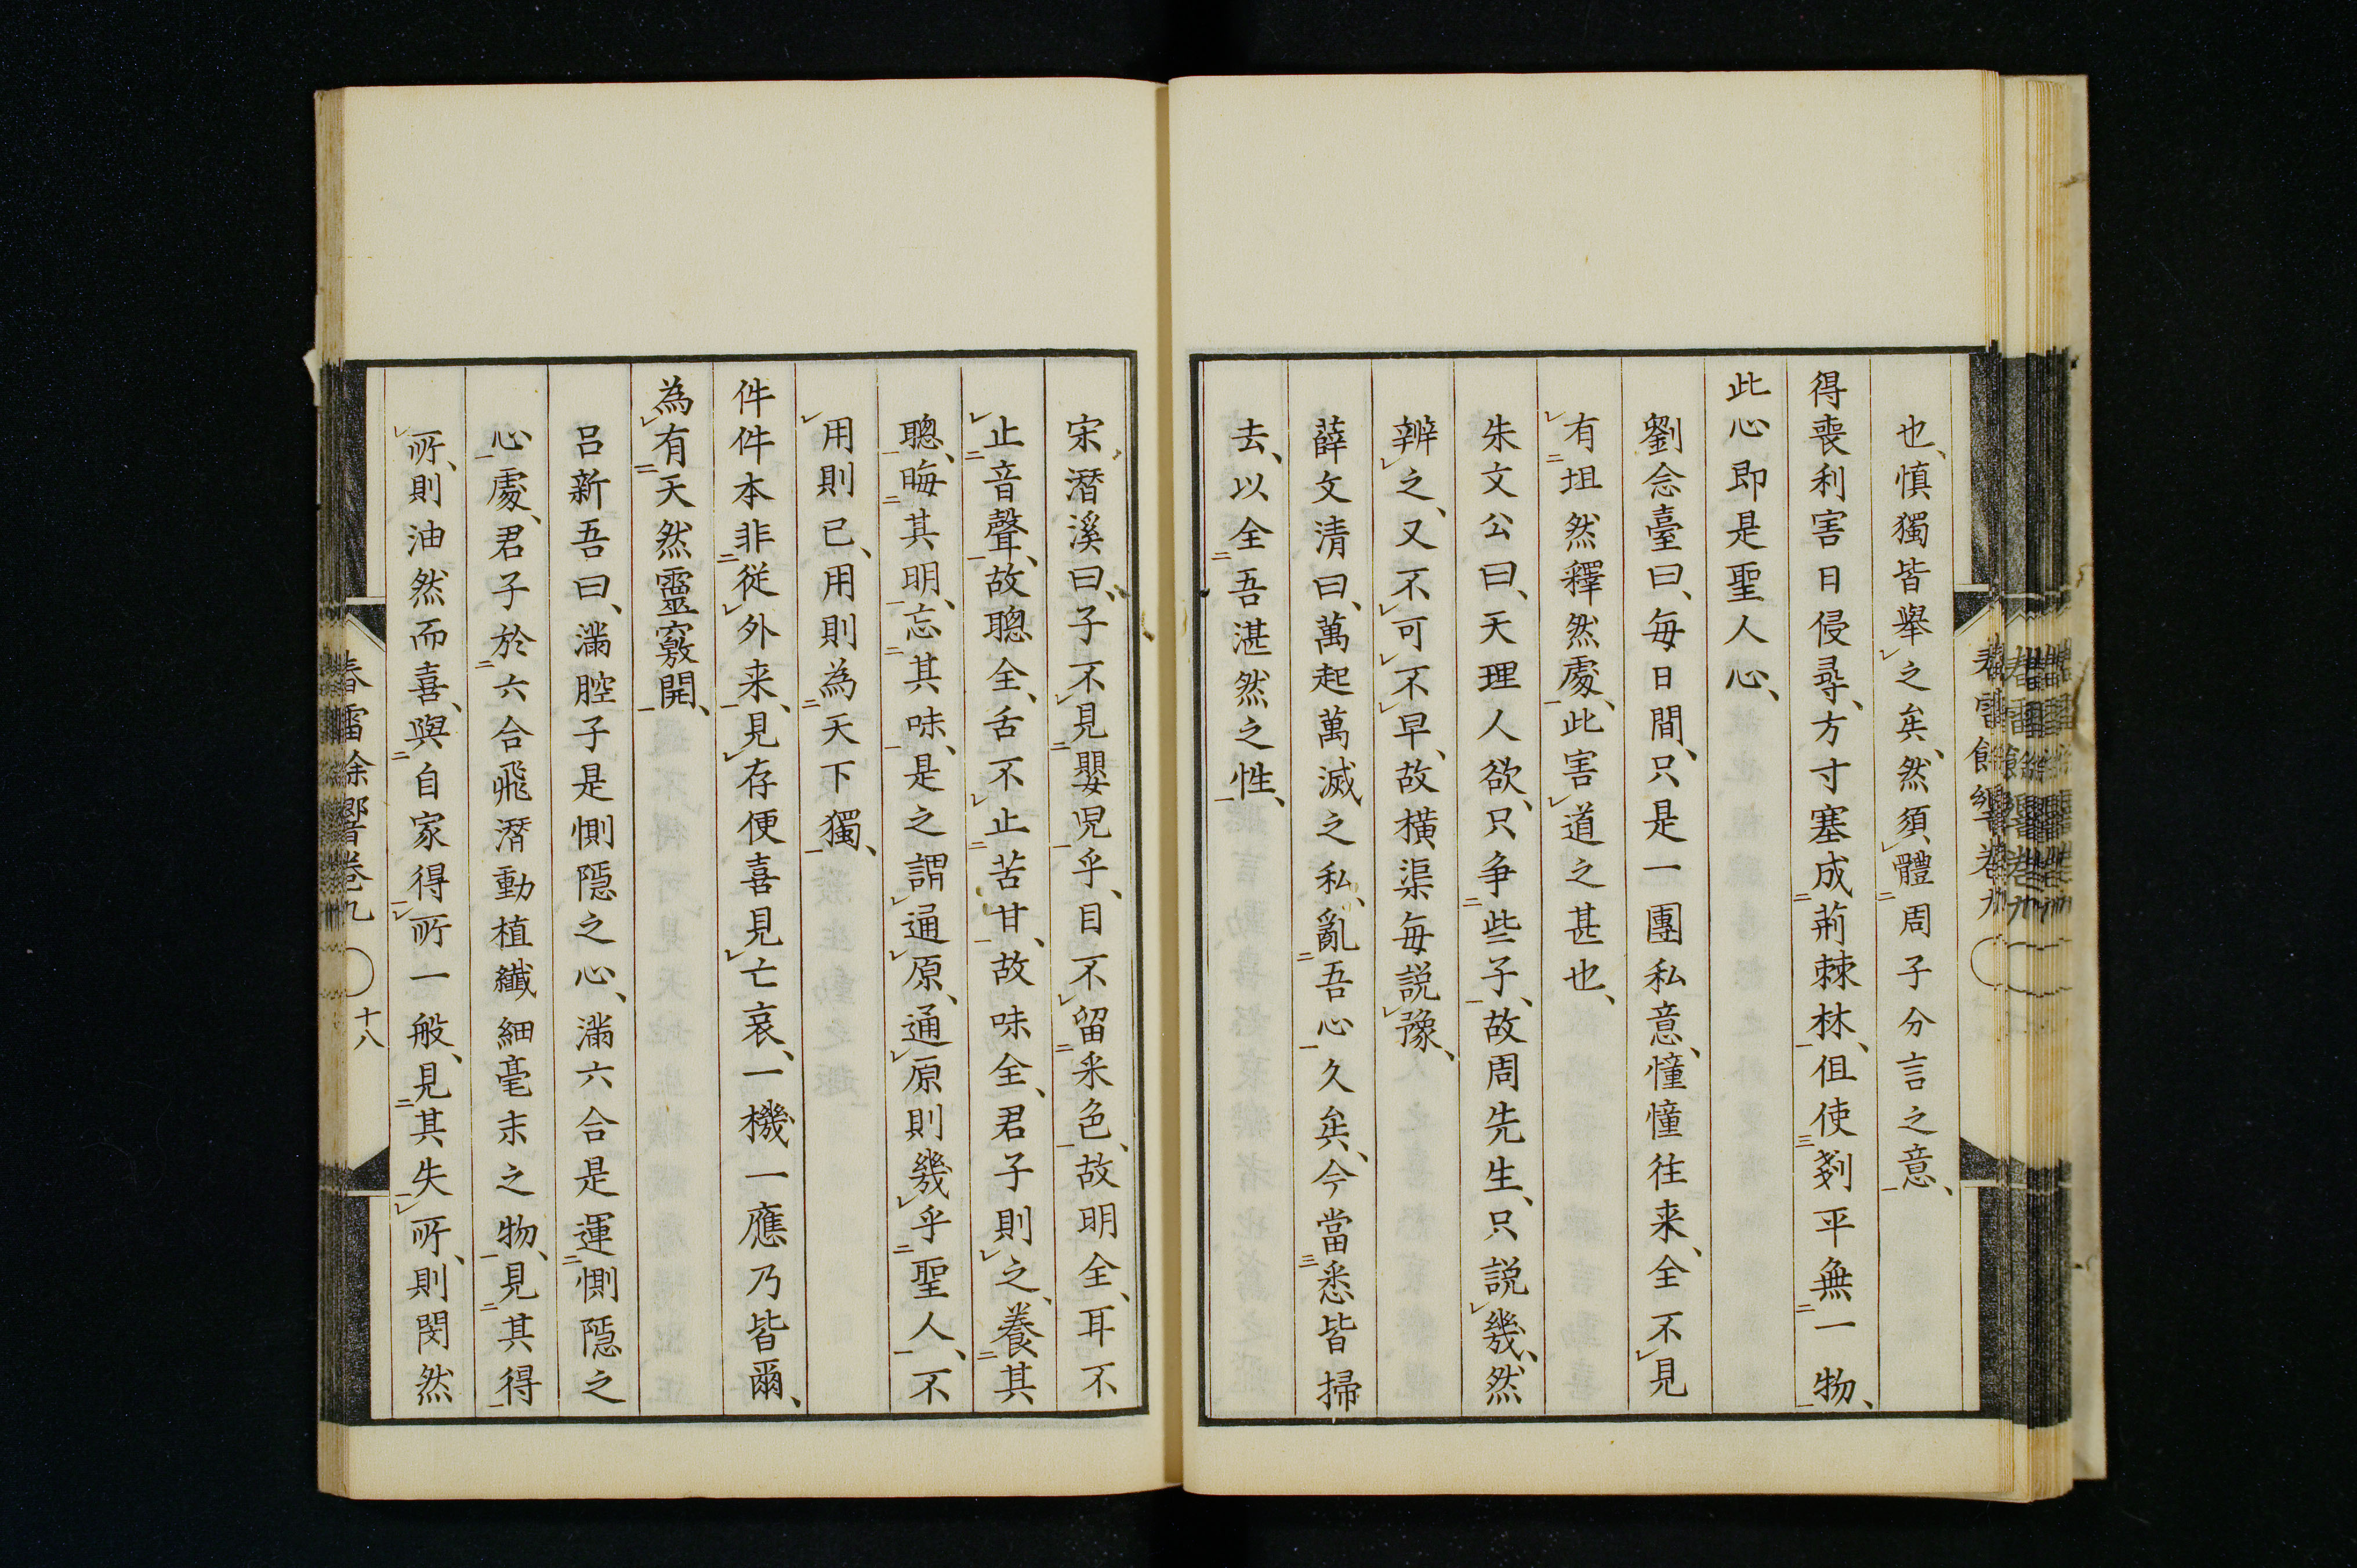 也、慎獨皆舉之矣、然須體周子分言之意、
得喪利害日侵尋、方寸塞成荊棘林、但使剗平無一物、
此心即是聖人心、
劉念臺曰、每日間、只是一團私意、憧憧往来、全不見
有坦然釋然處、此害道之甚也、
朱文公曰、天理人欲、只争些子、故周先生、只説幾、然
辨之、又不可不早、故橫渠每説豫、
薛文清曰、萬起萬滅之私、亂吾心久矣、今當悉皆掃
去、以全吾湛然之性、
宋潛溪曰、子不見嬰児乎、目不留釆色、故明全、耳不
止音聲、故聰全、舌不止苦甘、故味全、君子則之、養其
聰、晦其明、忘其味、是之謂通原、通原則幾乎聖人、不
用則已、用則為天下獨、
件件本非從外来、見存便喜見亡哀、一機一應乃皆爾、
為有天然靈竅開、
呂新吾曰、滿腔子是惻隱之心、滿六合是運惻隱之
心處、君子於六合飛潛動植纖細毫末之物、見其得
所、則油然而喜、與自家得所一般、見其失所、則閔然
春雷餘響卷九
十八